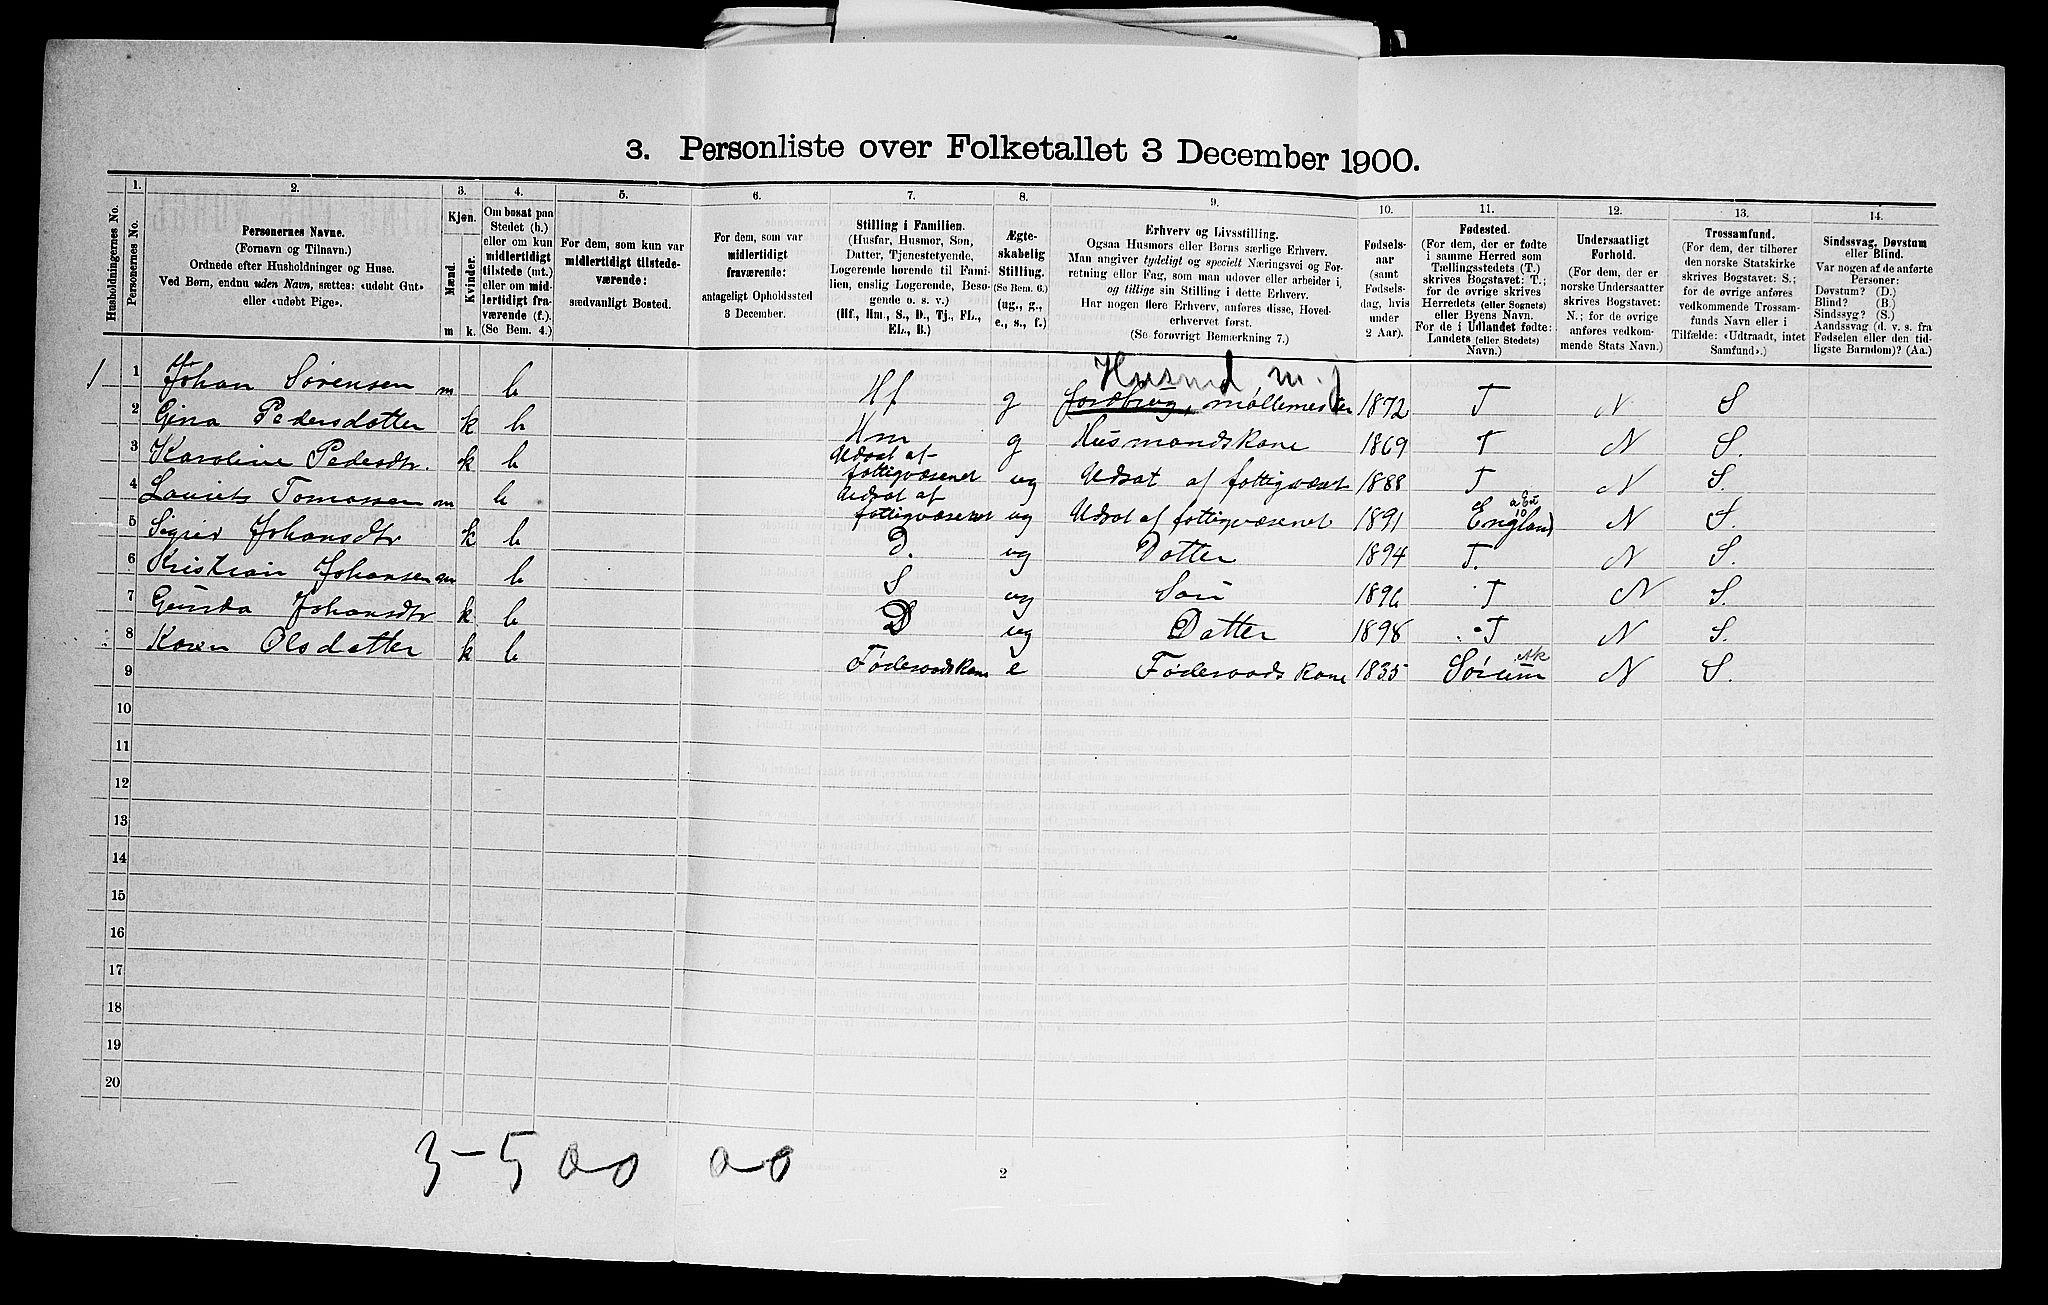 3. Personliste over Folketallet 3 December 1900.
Husholdningernes No.
1.
Personernes No.
2.
Personernes Navne.
(Fornavn og Tilnavn.)
Ordnede efter Husholdninger og Huse.
Ved Børn, endnu uden Navn, sættes: «udøbt Gut»
eller «udøbt Pige».
3.
Kjøn.
Mænd.
Kvinder.
m
k.
4.
Om bosat paa
Stedet (b.)
eller om kun
midlertidigt
tilstede (mt.)
eller om mid-
lertidigt fra-
værende (f.).
(Se Bem. 4.)
5.
For dem, som kun var
midlertidigt tilstede-
værende:
sædvanligt Bosted.
6.
For dem, som var
midlertidigt
fraværende:
antageligt Opholdssted
3 December.
7.
Stilling i Familien.
(Husfar, Husmor, Søn,
Datter, Tjenestetyende,
Logerende hørende til Fami-
lien, enslig Logerende, Besø-
gende o. s. v.)
(Hf., Hm., S., D., Tj., FL.,
EL., B.)
8.
Ægte-
skabelig
Stilling.
(Se Bem. 6.)
(ug., g.,
e., s., f.)
9.
Erhverv og Livsstilling.
Ogsaa Husmors eller Børns særlige Erhverv.
Man angiver tydeligt og specielt Næringsvei og For-
retning eller Fag, som man udover eller arbeider i,
og tillige sin Stilling i dette Erhverv.
Har nogen flere Erhverv, anføres disse, Hoved-
erhvervet først.
(Se forøvrigt Bemærkning 7.)
10.
Fødsels-
aar
(samt
Fødsels-
dag, hvis
under
2 Aar).
11.
Fødested.
(For dem, der er fødte
i samme Herred som
Tællingsstedets (T.)
skrives Bogstavet: T.;
for de øvrige skrives
Herredets (eller Sognets)
eller Byens Navn.
For de i Udlandet fødte:
Landets (eller Stedets)
Navn.)
12.
Undersaatligt
Forhold.
(For dem, der er
norske Undersaatter
skrives Bogstavet:
N.; for de øvrige
anføres vedkom-
mende Stats Navn.)
13.
Trossamfund.
(For dem, der tilhører
den norske Statskirke
skrives Bogstavet: S.;
for de øvrige anføres
vedkommende Trossam-
funds Navn eller i
Tilfælde: «Udtraadt, intet
Samfund».)
14.
Sindssvag, Døvstum
eller Blind.
Var nogen af de anførte
Personer:
Døvstum? (D.)
Blind? (B.)
Sindssyg? (S.)
Aandssvag (d. v. s. fra
Fødselen eller den tid-
ligste Barndom)? (Aa.)
Husmd m. j
1 1 Johan Sørensen m b Hf g jordbrug, møllemester 1872 T N S
2 Gina Pedersdatter k b Hm g Husmandskone 1869 T N S.
3 Karoline Pedersdtr. k b Udsat af fattigvæsenet ug Udsat af fattigvæset 1888 T N S.
4 Laurits Tomassen m b Udsat af fattigvæsenet ug Udsat af fattigvæsenet 1891 England N S.
5 Sigrid Johansdtr k b D. ug Datter 1894 T. N S.
6 Kristian Johansen m b S ug Søn 1896 T N S.
7 Gunda Johansdtr k b D ug Datter 1898 T N S.
8 Karen Olsdatter k b Føderaadskone e Føderaadskone 1835 Sørum Ak N S.
9
10
11
12
13
14
15
16
17
18
19
20
3-500 00
2